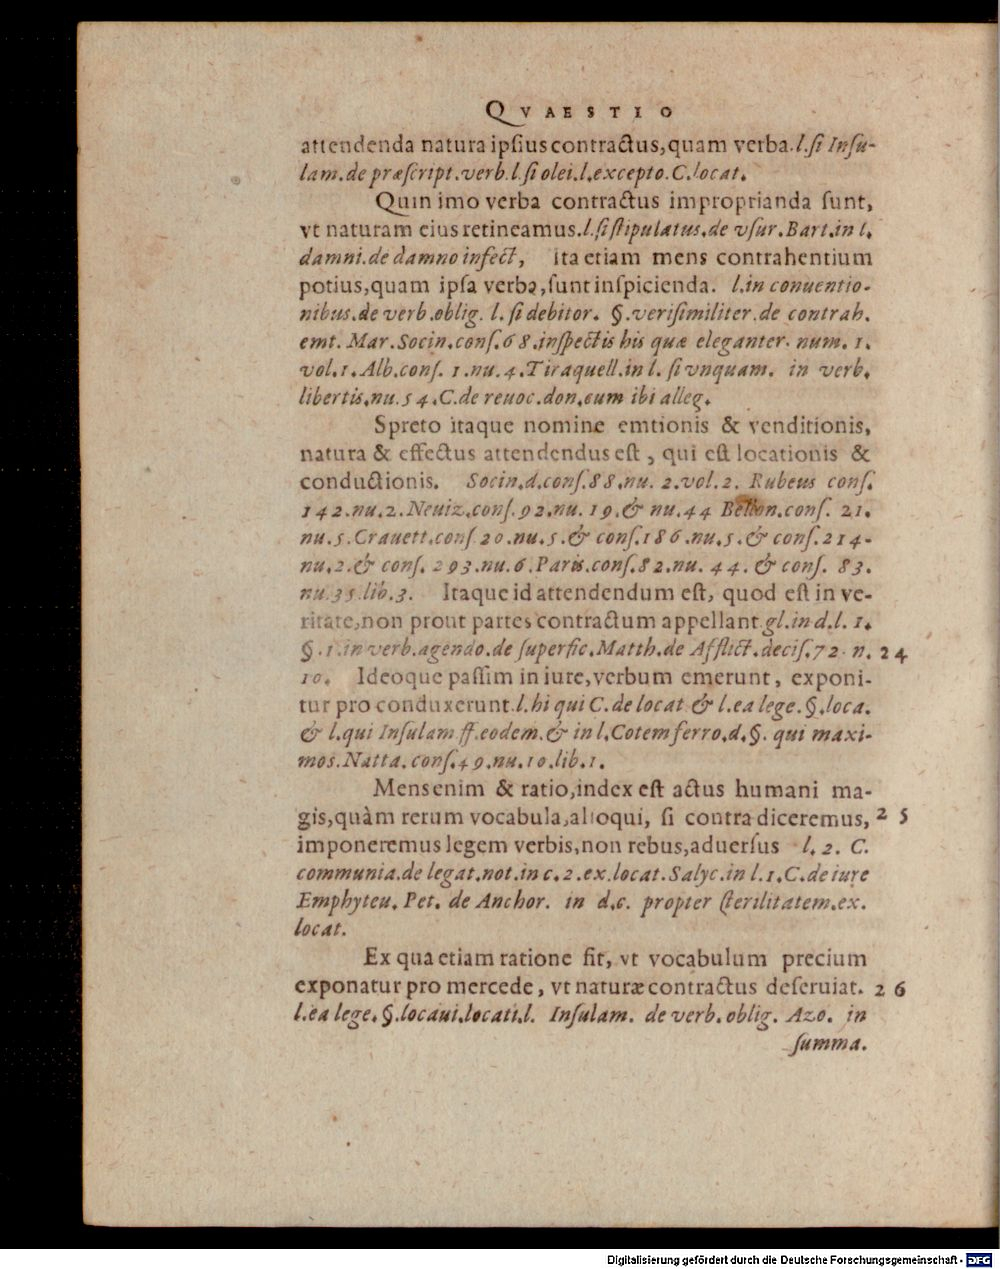 QVAESTIO
attendenda natura ipſius contractus, quam verba. l. ſi Inſu-
lam. de præſcript. verb. l. ſi olei. l. excepto. C. locat.
Quin imo verba contractus improprianda ſunt,
vt naturam eius retineamus. l. ſi ſtipulatus. de vſur. Bart. in l.
damni. de damno infect, ita etiam mens contrahentium
potius, quam ipſa verba, ſunt inſpicienda. l. in conuentio-
nibus. de verb. oblig. l. ſi debitor. §. veriſimiliter. de contrah.
emt. Mar. Socin. conſ. 68. inſpectis his quæ eleganter. num. 1.
vol. 1. Alb. conſ. 1. nu. 4. Tiraquell. in l. ſi vnquam. in verb.
libertis. nu. 54. C. de reuoc. don. cum ibi alleg.
Spreto itaque nomine emtionis & venditionis,
natura & effectus attendendus eſt, qui eſt locationis &
conductionis. Socin. d. conſ. 88. nu. 2. vol. 2. Rubeus conſ.
142. nu. 2. Neuiz. conſ. 92. nu. 19. & nu. 44 Bellon. conſ. 21.
nu. 5. Crauett. conſ 20. nu. 5. & conſ. 186. nu. 5. & conſ. 214.
nu. 2. & conſ. 293. nu. 6. Paris. conſ. 82. nu. 44. & conſ. 83.
nu. 35. lib. 3. Itaque id attendendum eſt, quod eſt in ve-
ritate, non prout partes contractum appellant. gl. in d. l. 1.
§. 1. in verb. agendo. de ſuperfic. Matth. de Afflict. deciſ. 72. n. 24
10. Ideoque paſſim in iure, verbum emerunt, exponi-
tur pro conduxerunt. l. hi qui C. de locat & l. ea lege. §. loca.
& l. qui Inſulam ff. eodem. & in l. Cotem ferro. d. §. qui maxi-
mos. Natta. conſ. 49. nu. 10. lib. 1.
Mens enim & ratio, index eſt actus humani ma-
gis, quàm rerum vocabula, alioqui, ſi contra diceremus, 25
imponeremus legem verbis, non rebus, aduerſus l. 2. C.
communia. de legat. not. in c. 2. ex. locat. Salyc. in l. 1. C. de iure
Emphyteu. Pet. de Anchor. in d. c. propter ſterilitatem. ex.
locat.
Ex qua etiam ratione fit, vt vocabulum precium
exponatur pro mercede, vt naturæ contractus deſeruiat. 26
l. ea lege. §. locaui. locati. l. Inſulam. de verb. oblig. Azo. in
ſumma.
Digitalisierung gefördert durch die Deutsche Forschungsgemeinschaft - DFG